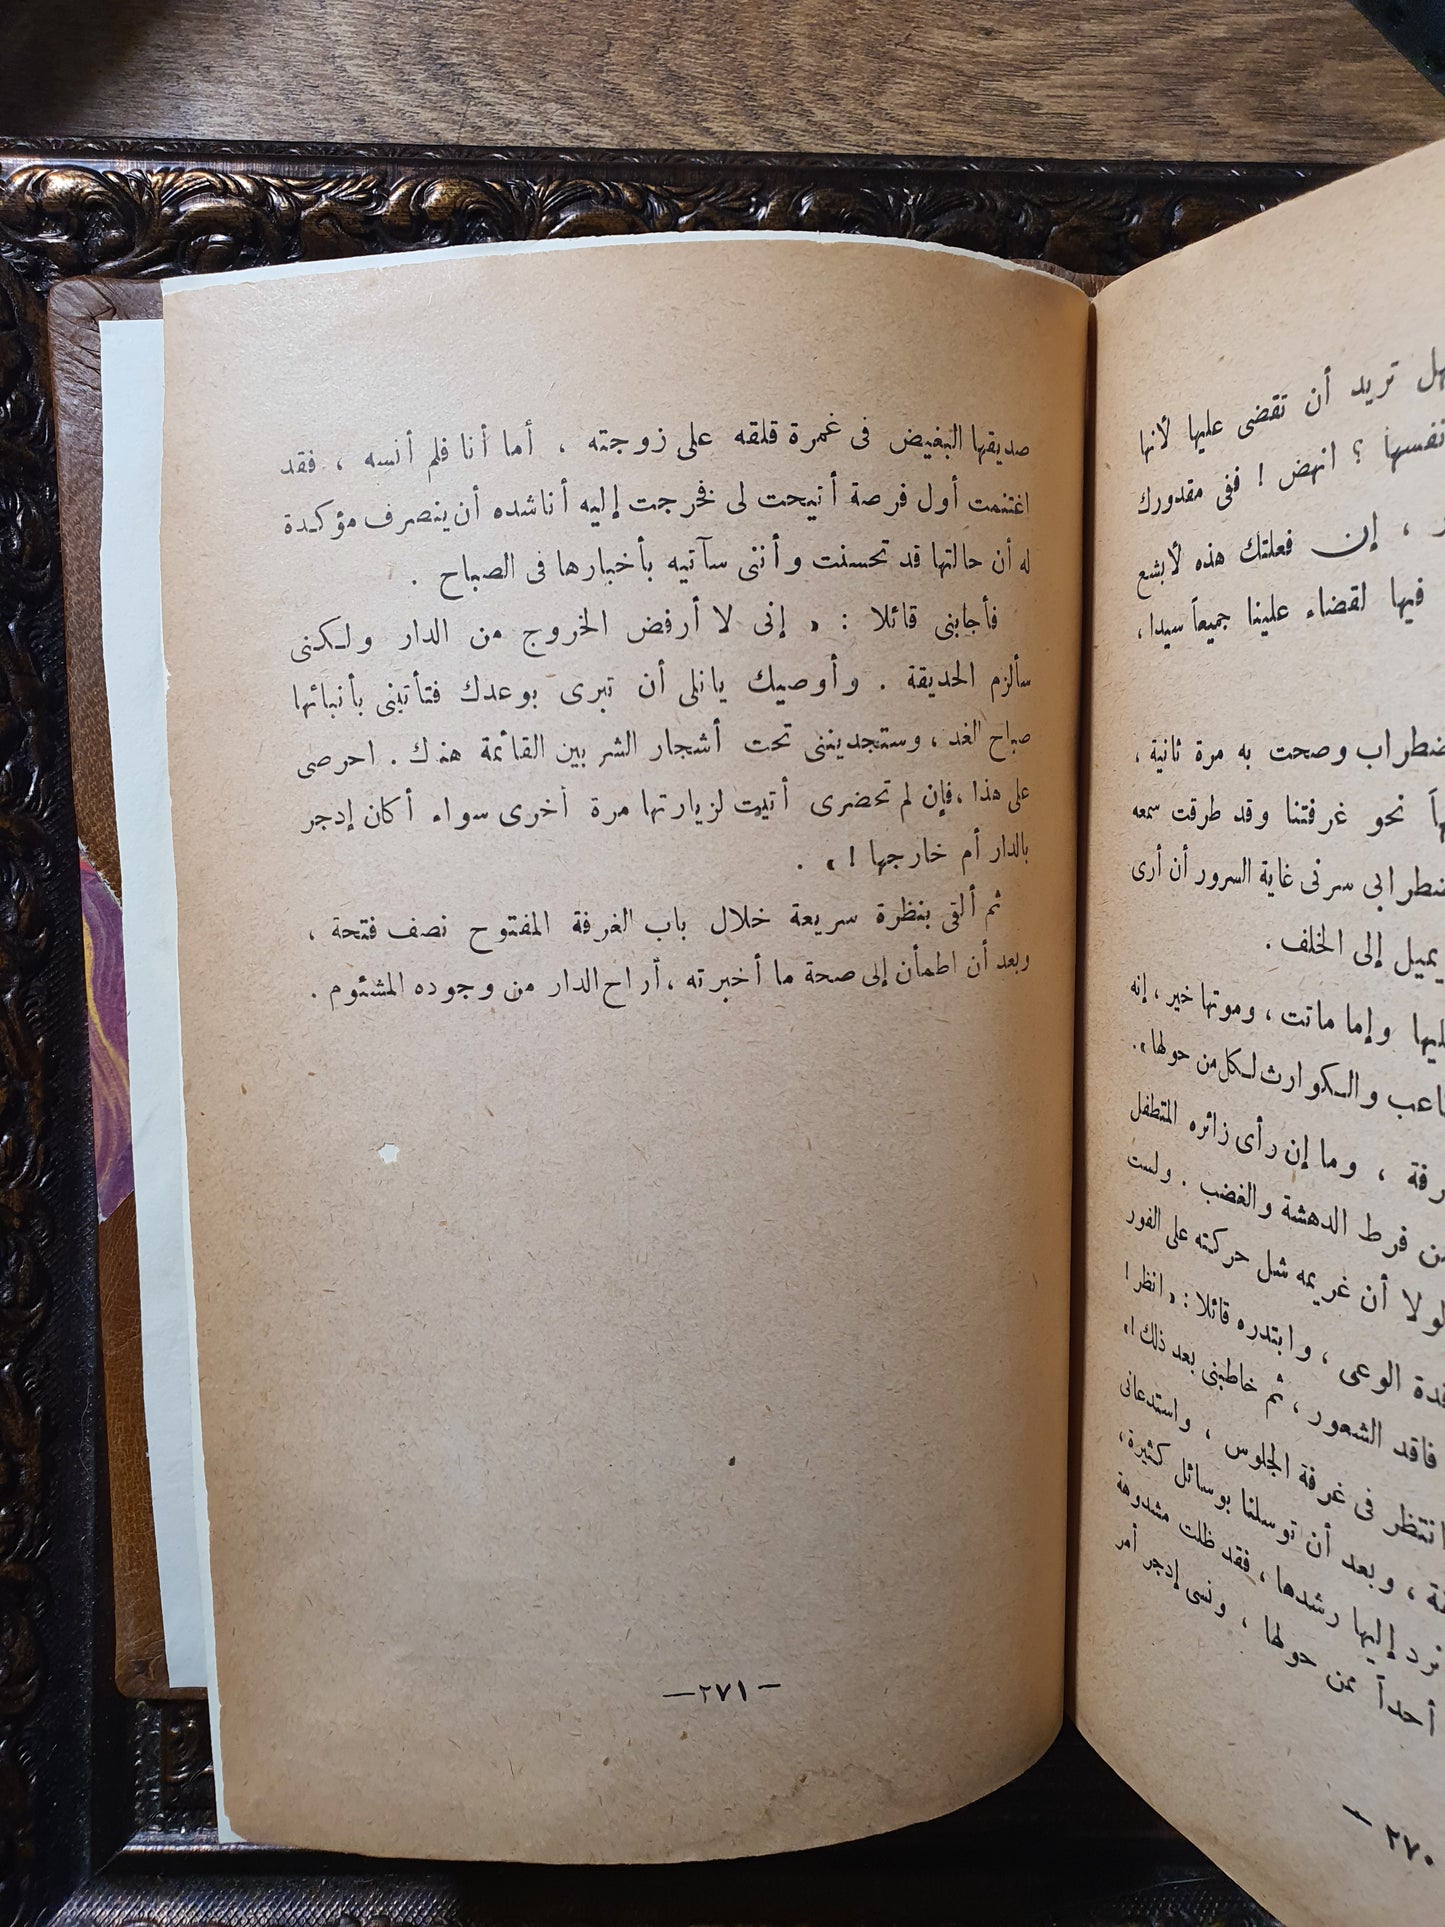 هل تريد أن تقضى عليها لأنها
نفسها ؟ انهض ! ففى مقدورك
، إن فعلتك هذه لأبشع
فيها لقضاء علينا جميعاً سيدا ،
وصحت به مرة ثانية ،
نحو غرفتنا وقد طرقت سمعه
سرنى غاية السرور أن أرى
يميل إلى الخلف .
وإما ماتت ، وموتها خير ، إنه
والكوارث لكل من حولها » .
، وما إن رأى زائره المتطفل
فرط الدهشة والغضب . ولست
لولا أن غريمه شل حركته على الفور
الوعى ، وابتدره قائلا : « انظر !
فاقد الشعور ، ثم خاطبنى بعد ذلك ! »
انتظر فى غرفة الجلوس ، واستدعانى
، وبعد أن توسلنا بوسائل كثيرة ،
إليها رشدها ، فقد ظلت مشدوهة
أحداً ممن حولها ، ونسى إدجر أمر
٢٧٠ —
صديقها البغيض فى غمرة قلقه على زوجته ، أما أنا فلم أنسه ، فقد
اغتنمت أول فرصة أتيحت لى فخرجت إليه أناشده أن ينصرف مؤكدة
له أن حالتها قد تحسنت وأننى سآتيه بأخبارها فى الصباح .
فأجابنى قائلا : « إنى لا أرفض الخروج من الدار ولكنى
سألزم الحديقة . وأوصيك يانلى أن تبرى بوعدك فتأتينى بأنبائها
صباح الغد ، وستجديننى تحت أشجار الشربين القائمة هناك . احرصى
على هذا ، فإن لم تحضرى أتيت لزيارتها مرة أخرى سواء أكان إدجر
بالدار أم خارجها ! » .
ثم ألقى بنظرة سريعة خلال باب الغرفة المفتوح نصف فتحة ،
وبعد أن اطمأن إلى صحة ما أخبرته ، أراح الدار من وجوده المشئوم .
— ٢٧١ —